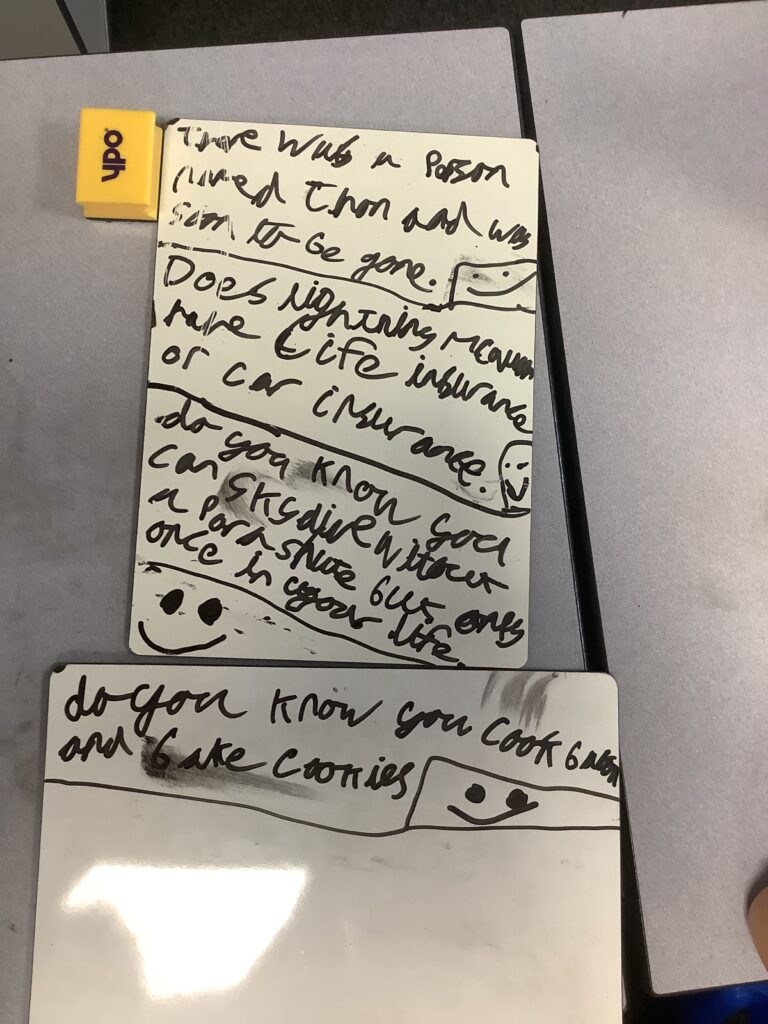 YPO
was a Person
and was
to be gone.
Does lightning
have Life insurance
or car insurance.
do you know you
can skydive without
a parashute but only
once in your life.
do you know you cook
and bake cookies